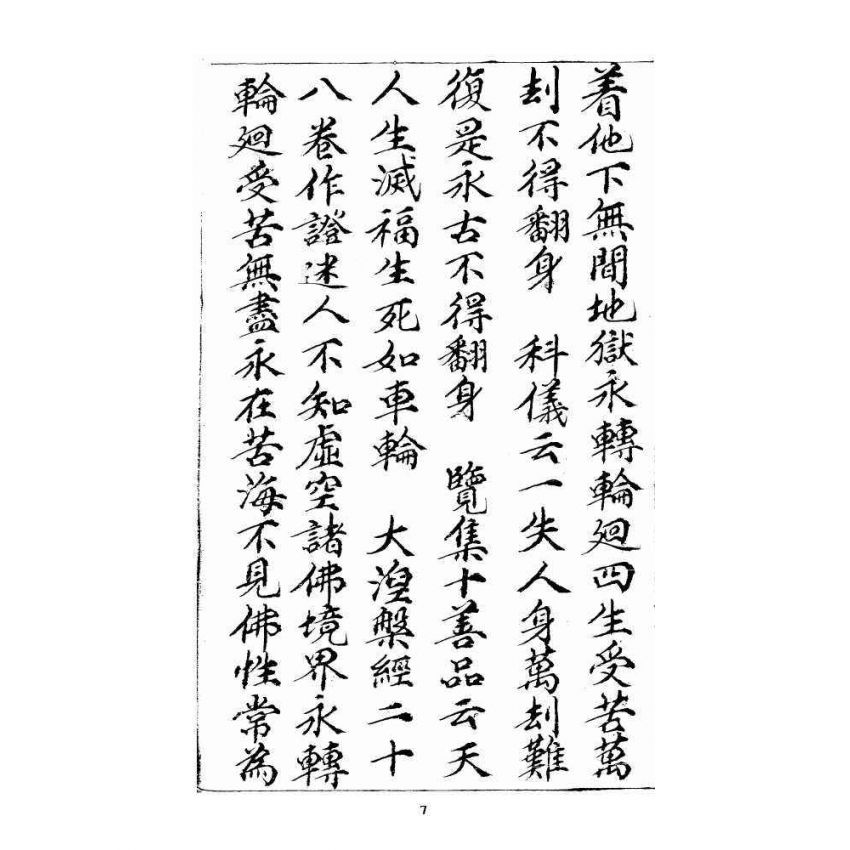 着他下無間地獄永轉輪廻四生受苦萬
刦不得翻身　科儀云一失人身萬刦難
復是永古不得翻身　覽集十善品云天
人生滅福生死如車輪　大涅槃經二十
八卷作證迷人不知虛空諸佛境界永轉
輪廻受苦無盡永在苦海不見佛性常為
7